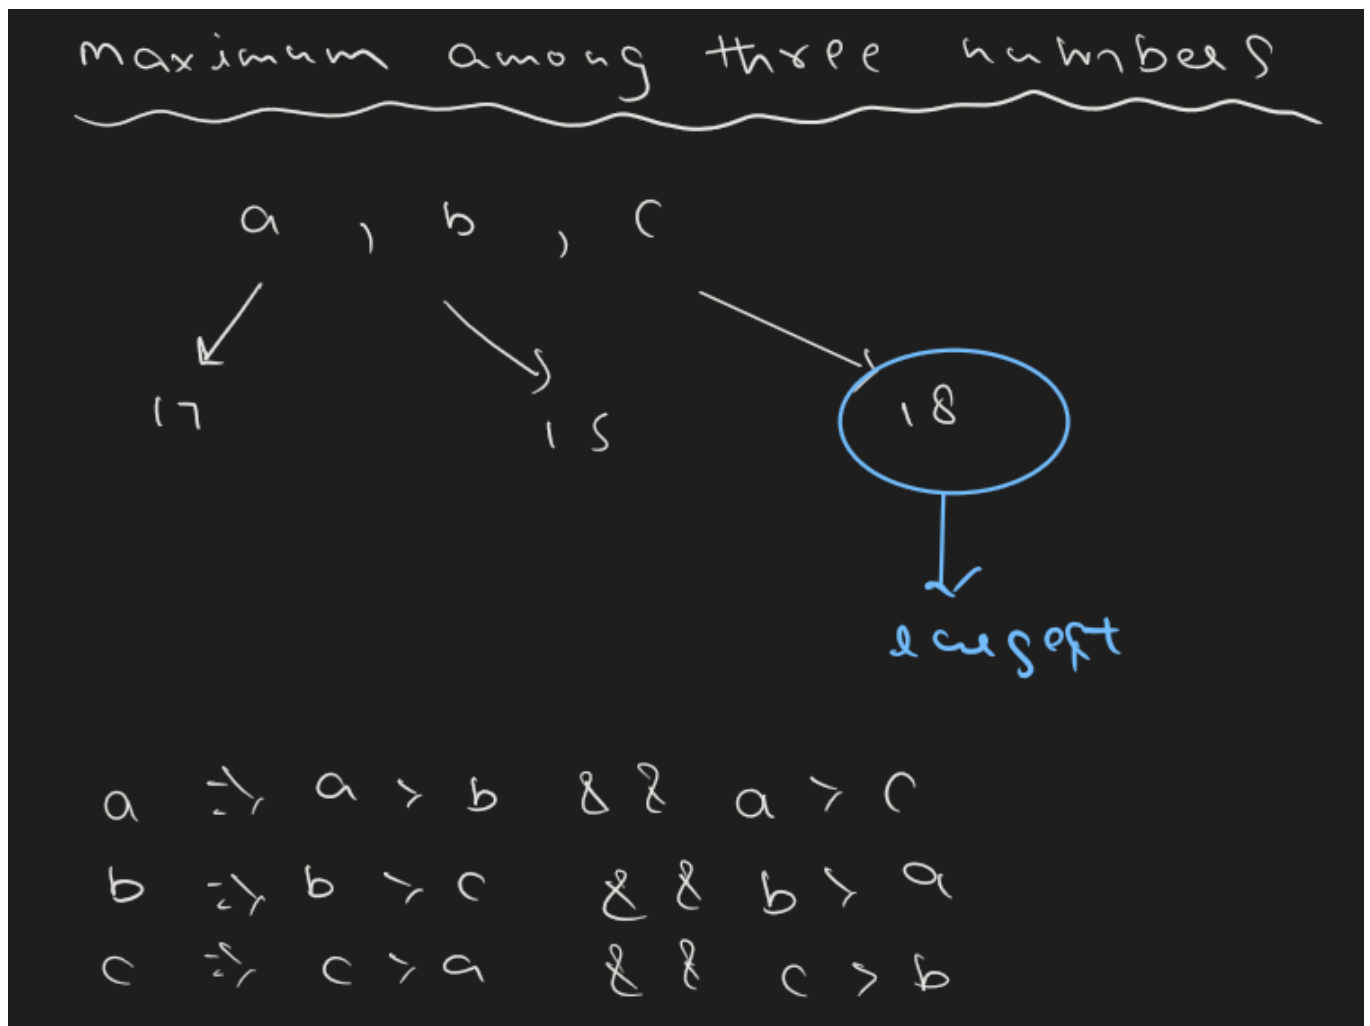 maximum among three numbers
a , b , c
17 15 18
largest
a => a > b && a > c
b => b > c && b > a
c => c > a && c > b